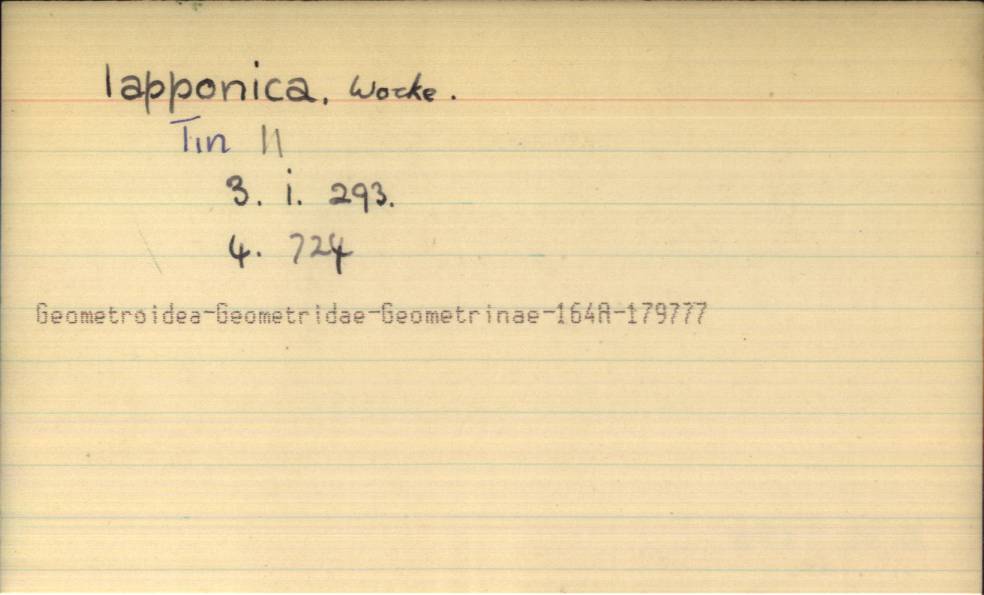 lapponica, Wocke.
Tin 11
3. i. 293.
4. 724
Geometroidea-Geometridae-Geometrinae-164A-179777